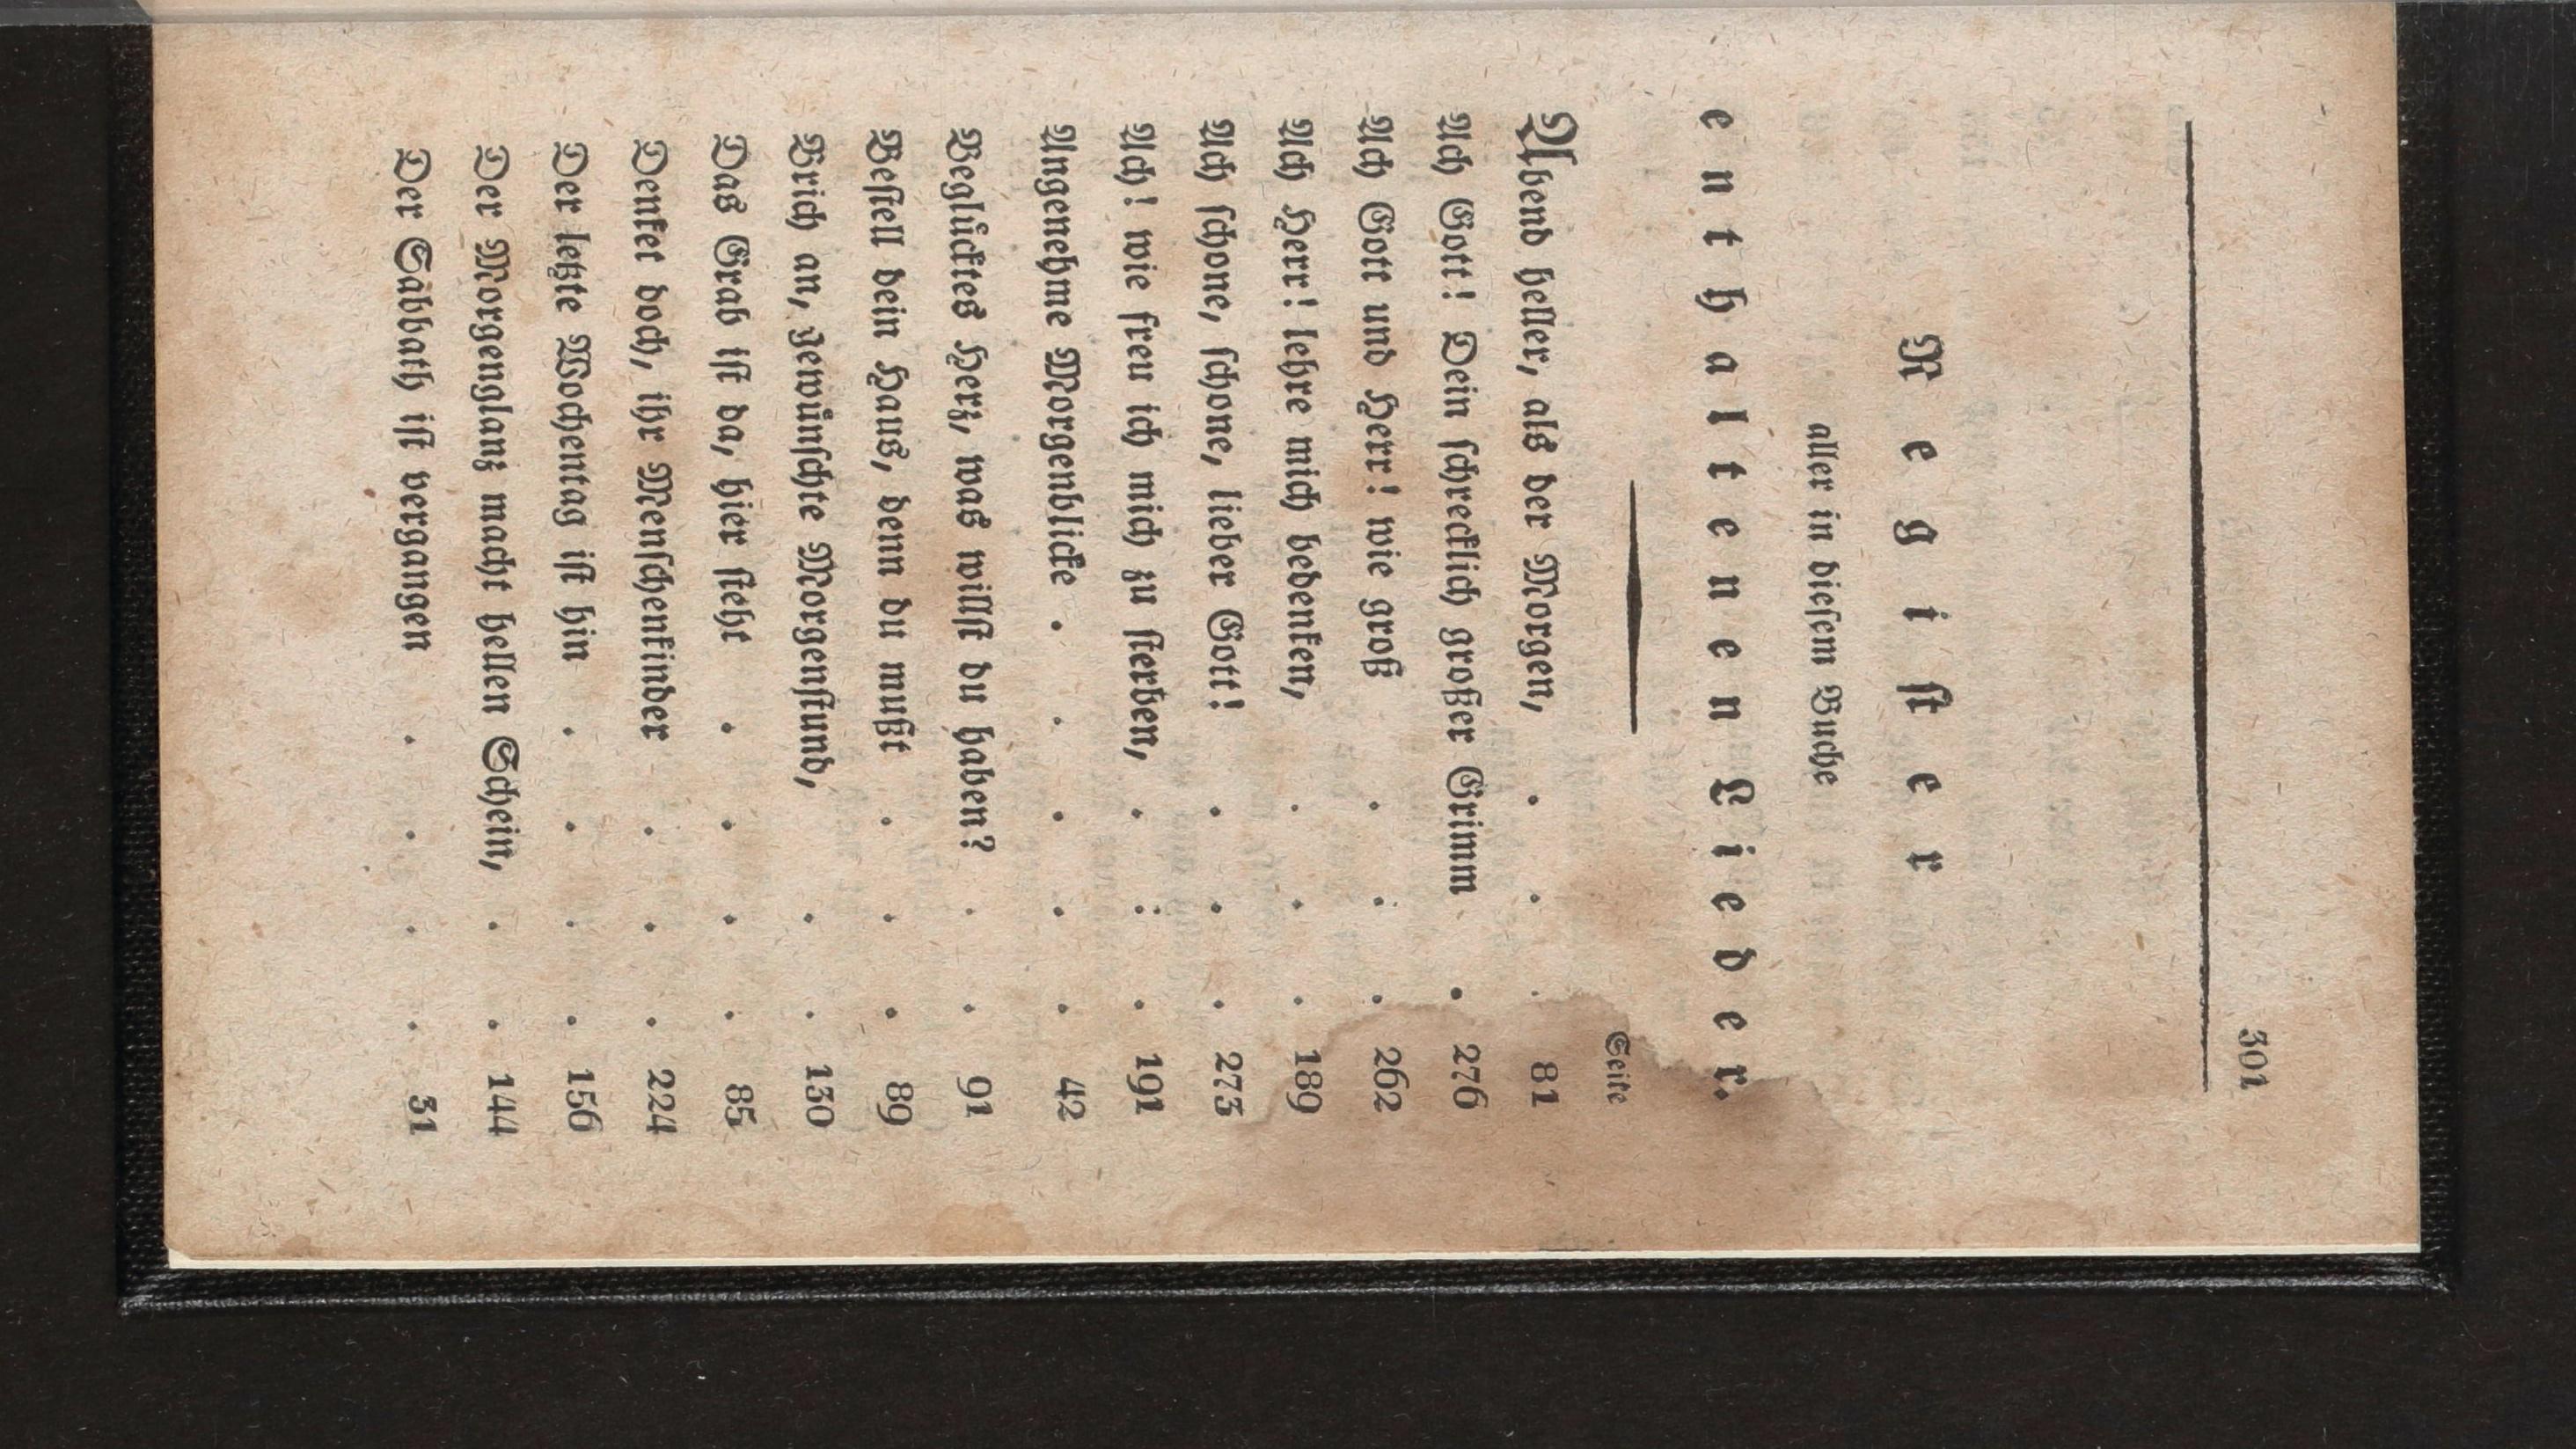 301
Register
aller in diesem Buche
enthaltenen Lieder.
Seite
Abend heller, als der Morgen, . . . 81
Ach Gott! Dein schrecklich großer Grimm . 276
Ach Gott und Herr! wie groß . . . 262
Ach Herr! lehre mich bedenken, . . . 189
Ach schone, schone, lieber Gott! . . . 273
Ach! wie freu ich mich zu sterben, . . . 191
Angenehme Morgenblicke . . . . . 42
Beglücktes Herz, was willst du haben? . . 91
Bestell dein Haus, denn du mußt . . . 89
Brich an, gewünschte Morgenstund, . . 130
Das Grab ist da, hier steht . . . . 85
Denket doch, ihr Menschenkinder . . . 224
Der letzte Wochentag ist hin . . . . 156
Der Morgenglanz macht hellen Schein, . . 144
Der Sabbath ist vergangen . . . . 31